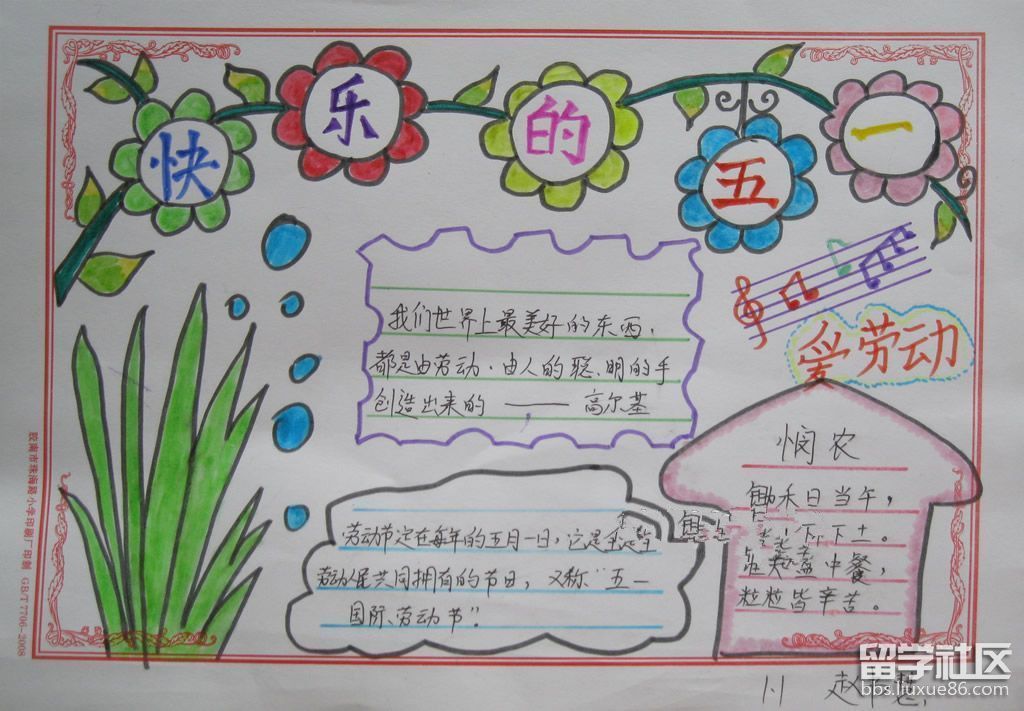 快乐的五一
我们世界上最美好的东西,
都是由劳动.由人的聪.明的手
创造出来的 —— 高尔基
爱劳动
悯农
锄禾日当午,
下土。
中餐,
粒粒皆辛苦。
劳动节定在每年的五月一日,这是
劳动人民共同拥有的节日,又称“五一
国际、劳动节”.
胶南市珠海路小学印刷厂印制 GB/T 7706-2008
1.1 赵
留学社区
bbs.liuxue86.com